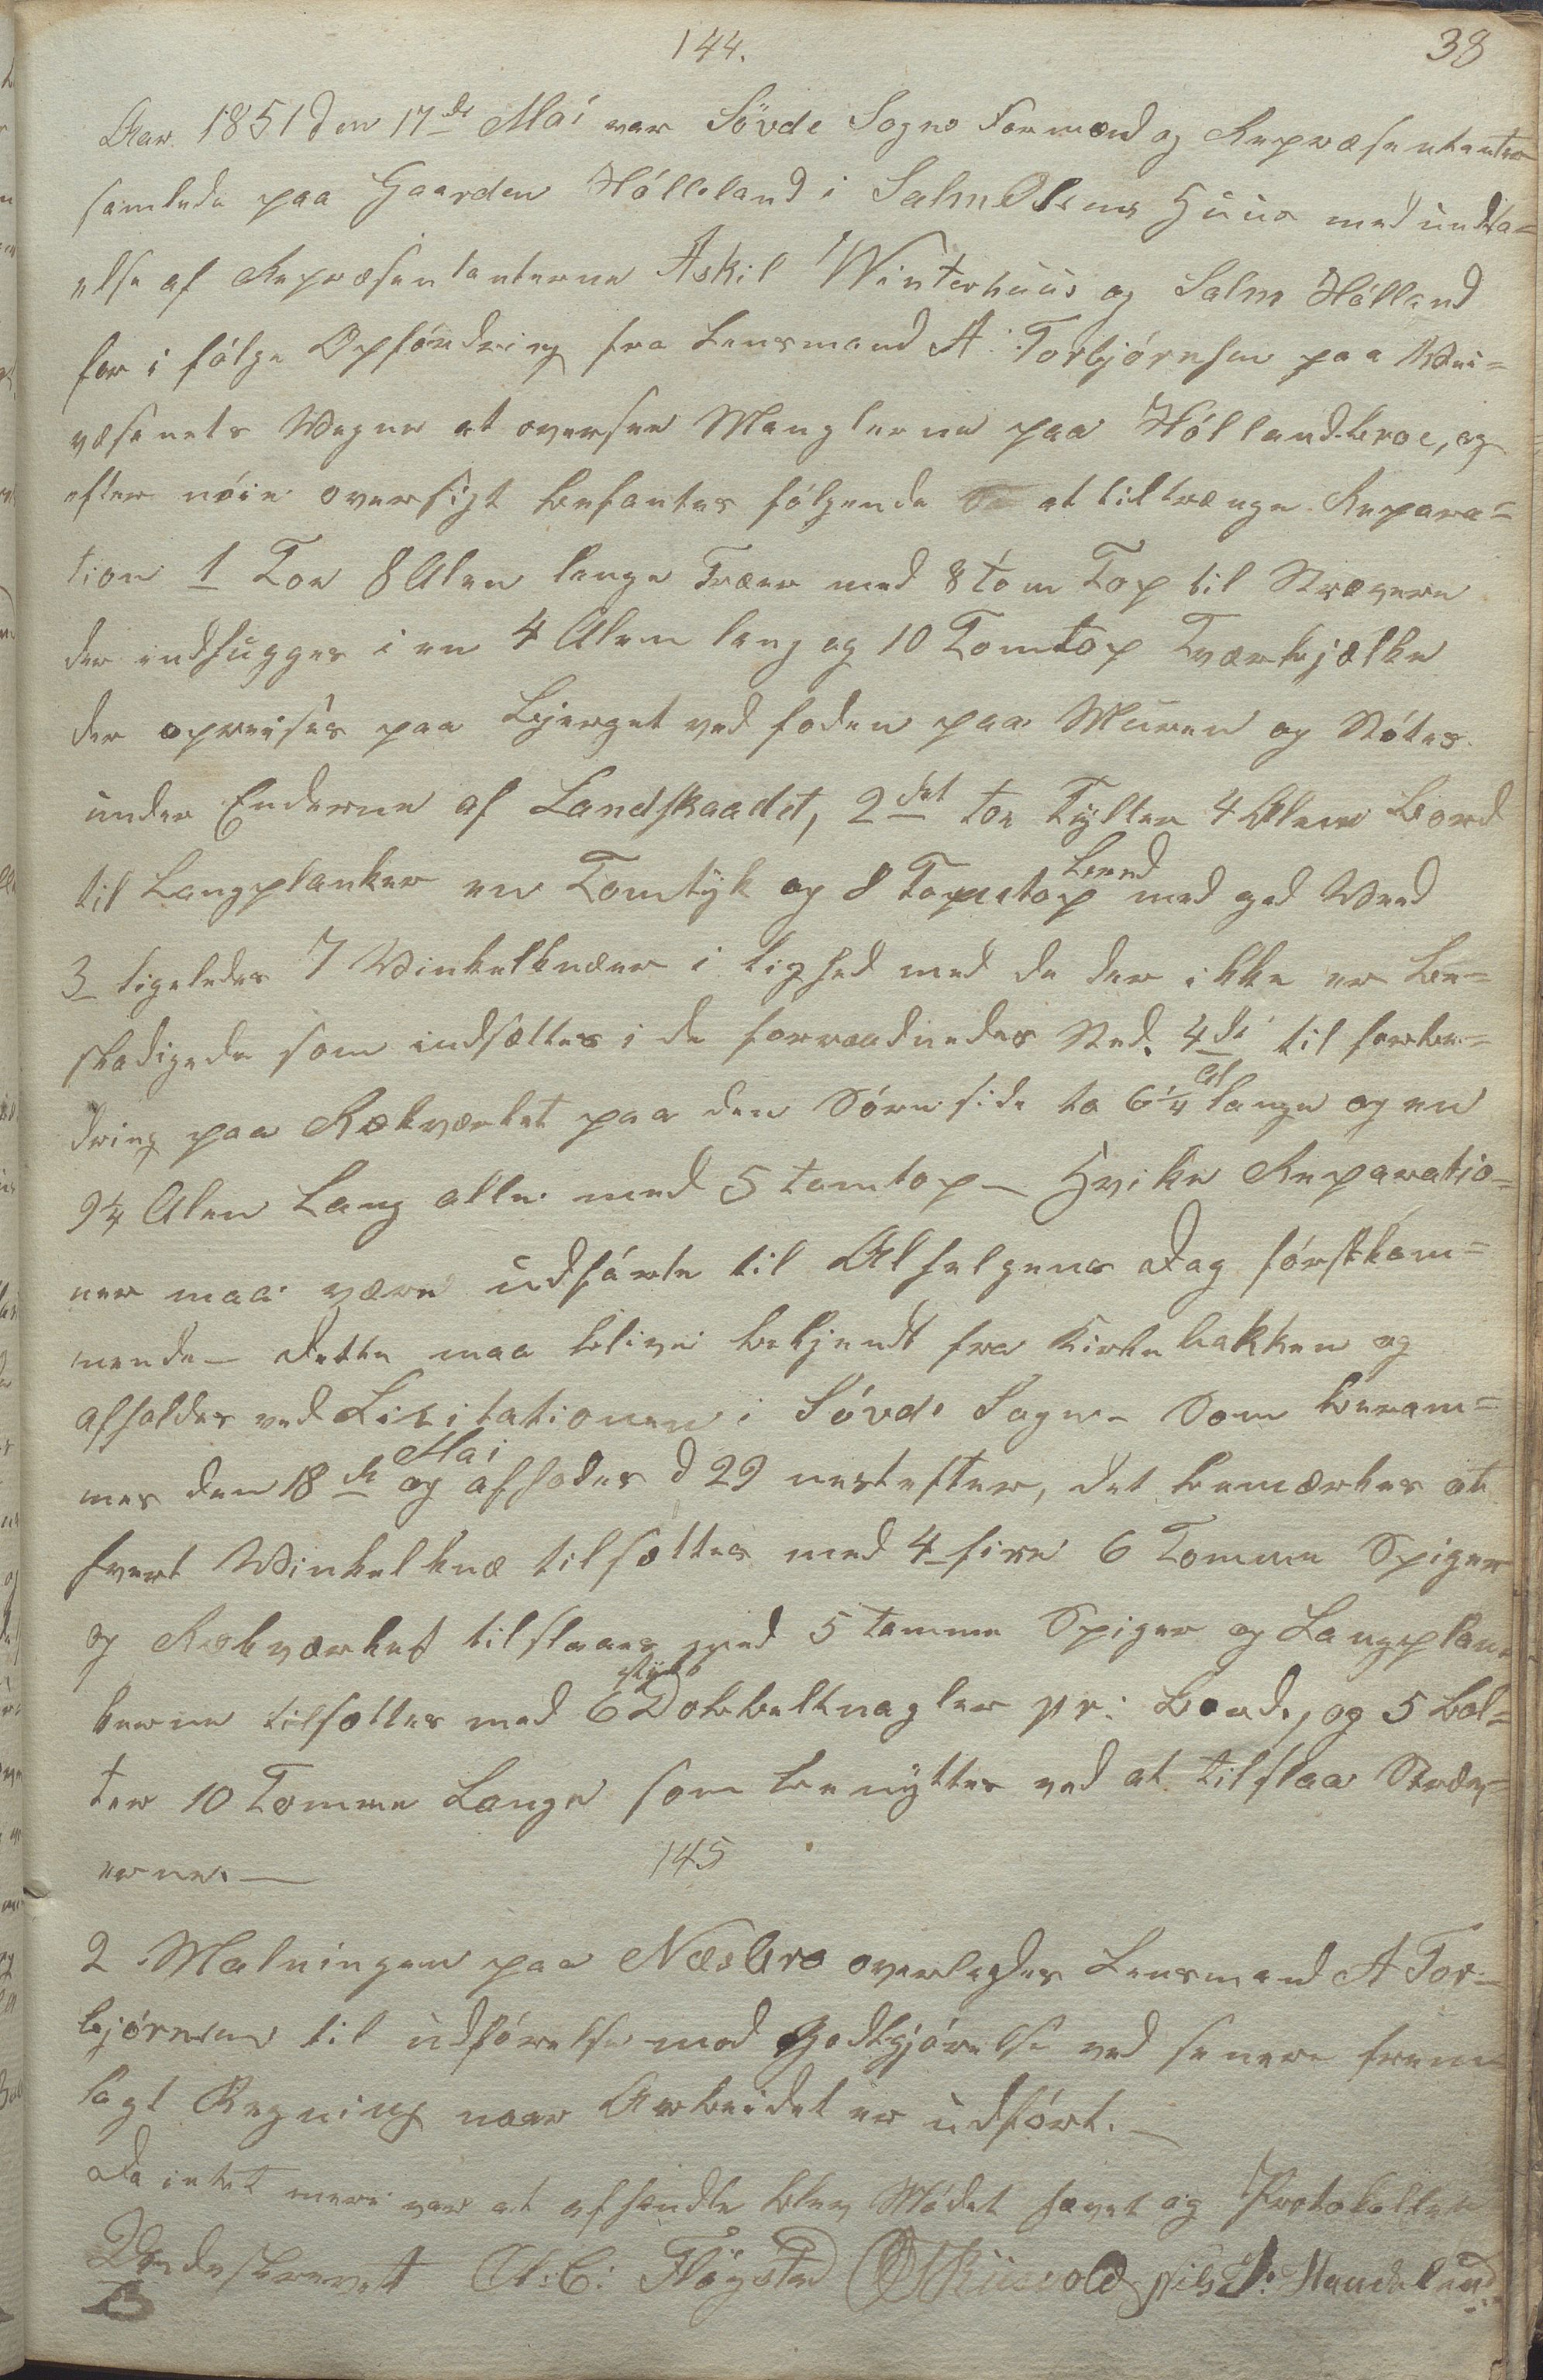 144.
38
Aar 1851 den 17de Mai var Sövde Sogns Formænd og Repræsentanter
samlede paa Gaarden Hölleland i Salm Olsens Huus med undta=
else af Repræsentanterne Askil Winterhuus og Salm Hölland
for i fölge Opfordring fra Lensmand A. Torbjörnsen paa Vei=
væsenets Vegne at oversee Manglerne paa Hölland-broe, og
efter nöie oversigt befantes fölgende at tiltrænge Repara=
tion 1 Toe 8 Alen lange Træer med 8 tom Top til Strævere
der indhugges i en 4 Alen lang og 10 Tomtop Tværbjælke
der opreises paa Bjerget ved foden paa Muren og Stötes
under Enderne af Landskaadet, 2det toe Tylter 4 Alen bord
til Langplanker en Tomtyk og 8 Tomtop breed med god Veed
3 ligeledes 7 Vinkelknæer i lighed med de der ikke er be=
skadigede som indsættes i de forraadnedes Sted. 4de til forbe=
dring paa Rækværket paa den Söre side to 6 1/4 Al lange og en
9 1/4 Alen Lang alle med 5 tomtop – Hvilke Reparatio=
ner maa være udförte til Alhelgens Dag förstkom=
mende – Dette maa blive bekjendt fra Kirkebakken og
afholdes ved Lisitationen i Sövde Sogn – Som beram=
mes den 18de Mai og afhodes d 29 nestefter, det bemærkes at
hvert Vinkelknæ tilsættes med 4 fire 6 Tomme Spiger
og Rækværket tilslaaes med 5 tomme Spiger og Langplan=
kerne tilsættes med 6 stykr Dobbeltnagler pr: bord, og 5 bol=
ter 10 Tomme Lange som benyttes ved at tilslaa Stræv=
erne. –
145
2 Malningen paa Næsbro overlades Lensmand A Tor=
björnsen til udförelse mod Godtgjörelse ved senere frem=
lagt Regning naar Arbeidet er udfört. –
Da intet mere var at afhandle blev Mödet hævet og Protokollen
Undeskrevet A: C: Flögstad Nils J. Handeland